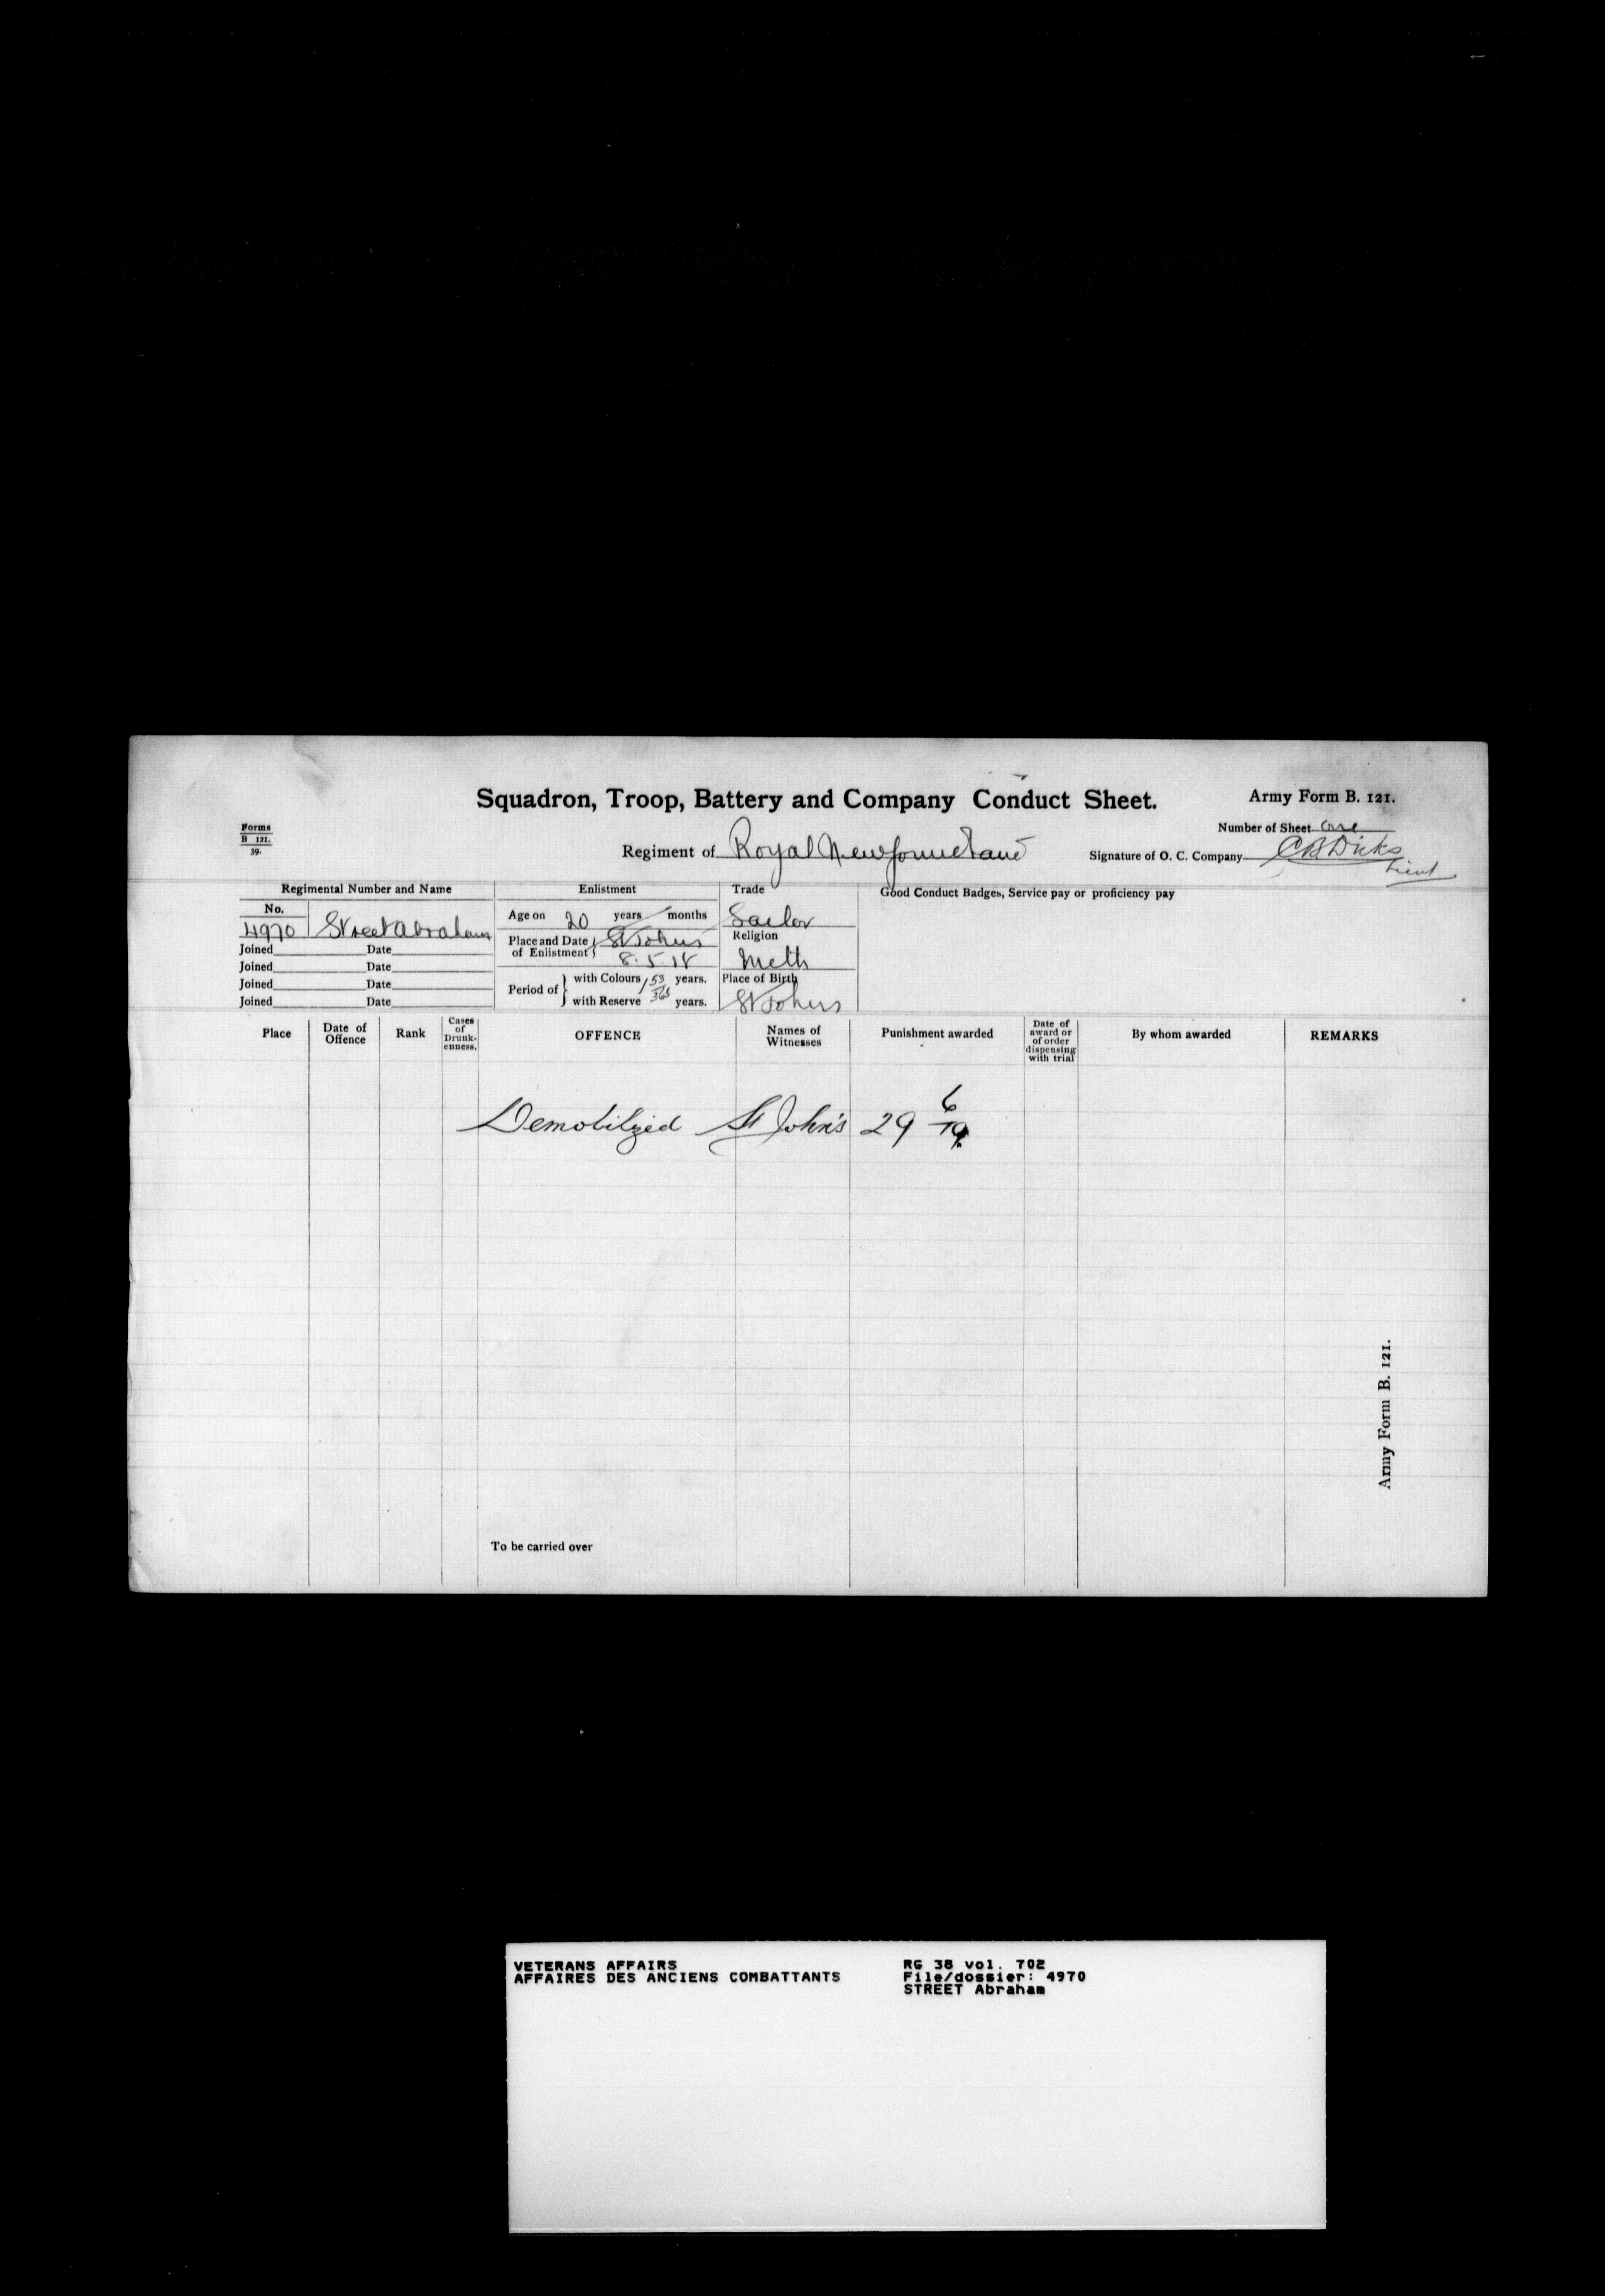 Squadron, Troop, Battery and Company Conduct Sheet.
Army Form B. 121.
Forms
B 121.
39.
Number of Sheet one
Regiment of Royal Newfoundland
Signature of O. C. Company CB Dicks
Lieut
Regimental Number and Name
Enlistment
Trade
Good Conduct Badges, Service pay or proficiency pay
No.
4970 Street Abraham
Age on 20 years / months
Sailor
Place and Date of Enlistment } St Johns
8.5.18
Religion
Meth
Joined Date
Joined Date
Joined Date
Joined Date
Period of } with Colours 1 53 years.
with Reserve 365 years.
Place of Birth
St Johns
Place
Date of Offence
Rank
Cases of Drunk-enness.
OFFENCE
Names of Witnesses
Punishment awarded
Date of award or of order dispensing with trial
By whom awarded
REMARKS
Demobilized St John's 29 6/19.
To be carried over
Army Form B. 121.
VETERANS AFFAIRS
AFFAIRES DES ANCIENS COMBATTANTS
RG 38 vol. 702
File/dossier: 4970
STREET Abraham